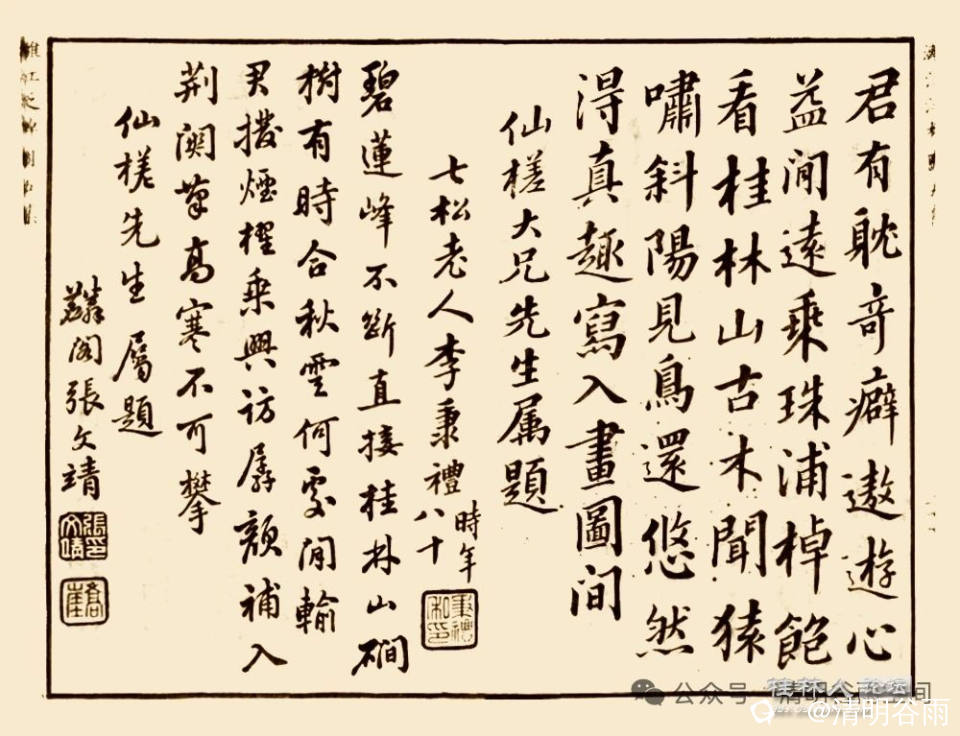 君有躭奇癖遨遊心
益閒遠乘珠浦棹飽
看桂林山古木聞猿
嘯斜陽見鳥還悠然
淂真趣寫入畫圖间
仙槎大兄先生属題
七松老人李秉禮時年八十
秉禮私印
碧蓮峰不斷直接桂林山磵
樹有時合秋雲何處閒輸
君撥煙櫂乘興訪孱顏補入
荆関筆高寒不可攀
仙槎先生屬題
麟阁張文靖
張印文靖
公众号·清明谷雨
桂林人论坛
@清明谷雨